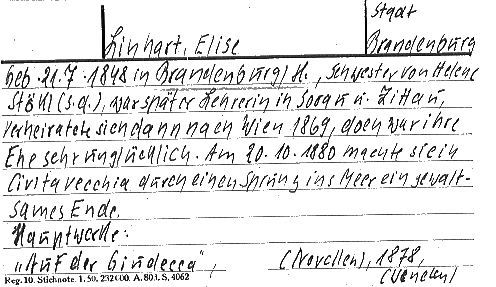 Stadt
Linhart, Elise
Brandenburg
geb. 21.7.1848 in Brandenburg/H., Schwester von Helene
Stökl (s.d.), war später Lehrerin in Sorau u. Zittau,
verheiratete sich dann nach Wien 1869, doch war ihre
Ehe sehr unglücklich. Am 20.10.1880 machte sie in
Civitavecchia durch einen Sprung ins Meer ein gewalt-
sames Ende.
Hauptwerke:
"Auf der Giudecca", (Novellen), 1878,
Reg. 10. Stichnote. 1. 50. 232000. A. 803. S. 4062